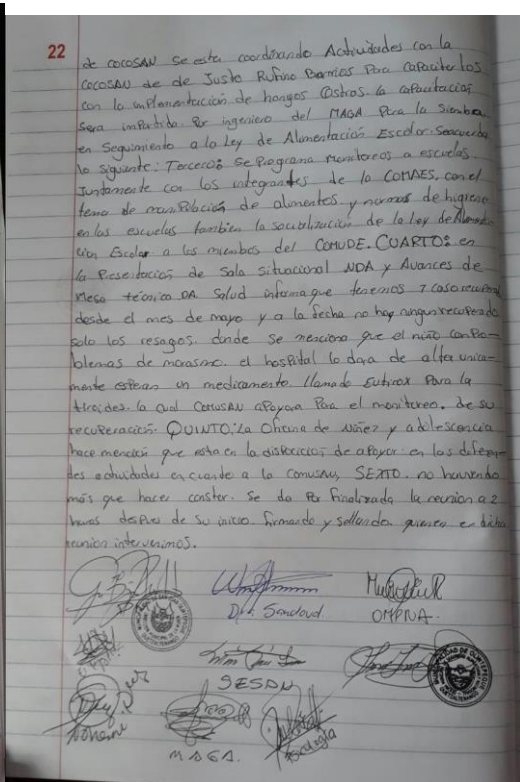 22
de COCOSAN se esta coordinando Actividades con la
COCOSAN de de Justo Rufino Barrios Para Capacitarlos
con la implementación de hongos Ostras. la capacitación
Sera impartida Por ingeniero del MAGA Para la Siembra
en Seguimiento a la Ley de Alimentación Escolar. Seacuerda
lo siguiente: Tercero: Se Programa monitoreos a escuelas
Juntamente con los integrantes de la COMAES, con el
tema de manipilación de alimentos y normas de higiene
en las escuelas tambien la socialización de la Ley de Alimenta-
ción Escolar a los miembros del COMUDE. CUARTO: en
la Presentación de Sala situacional NDA y Avances de
Mesa técnica DA. Salud informa que tenemos 7 caso recuperad
desde el mes de mayo y a la fecha no hay ningun recuperado
solo los resagos. donde se menciona que el niño con Pro-
blemas de marasmo. el hospital lo dara de alta unica-
mente esperan un medicamento llamado Eutirox Para la
tiroides. la cual COMUSAN apoyara Para el monitoreo. de su
recuperación. QUINTO: La Oficina de Niñez y adolescencia
hace mención que esta en la disposición de apoyar en las diferen-
tes actividades en cuanto a la COMUSAN, SEXTO. no havendo
más que hacer constar. Se da Por finalizada la reunion a 2
horas despues de su inicio. firmando y sellando. quienes en dicha
reunion intervenimos.
Sandoval.
OMPNA.
SESAN
MAGA.
Psicología